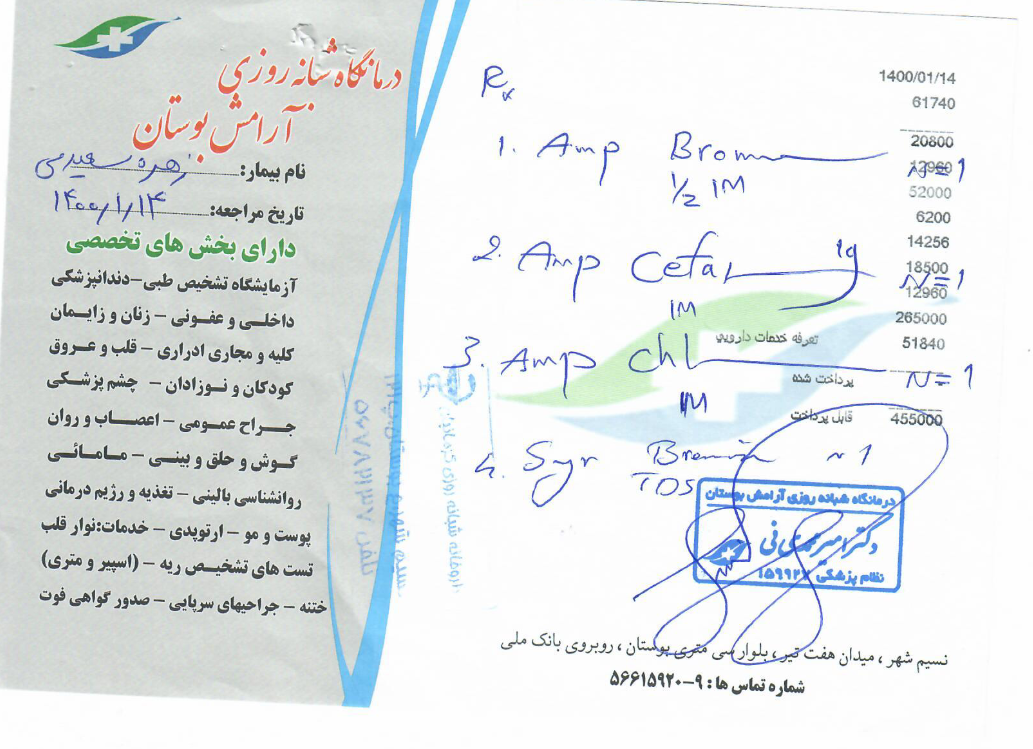 درمانگاه شبانه روزی
آرامش بوستان
نام بیمار: زهره سعیدی
تاریخ مراجعه: ۱۴۰۰/۱/۱۴
دارای بخش های تخصصی
آزمایشگاه تشخیص طبی – دندانپزشکی
داخلی و عفونی – زنان و زایمان
کلیه و مجاری ادراری – قلب و عروق
کودکان و نوزادان – چشم پزشکی
جراح عمومی – اعصاب و روان
گوش و حلق و بینی – مامائی
روانشناسی بالینی – تغذیه و رژیم درمانی
پوست و مو – ارتوپدی – خدمات: نوار قلب
تست های تشخیص ریه – (اسپیر و متری)
ختنه – جراحیهای سرپایی – صدور گواهی فوت
Rx
1400/01/14
61740
20800
1. Amp Brom N=1
12960
1/2 IM
52000
6200
14256
2. Amp Cefa 1g N=1
18500
IM
12960
265000
تعرفه خدمات دارویی 51840
3. Amp Chl N=1
پرداخت شده
IM
قابل پرداخت 455000
4. Syr N 1
TDS
درمانگاه شبانه روزی آرامش بوستان
دکتر امیر
نظام پزشکی ۱۵۹۹۲۷
نسیم شهر ، میدان هفت تیر ، بلوار سی متری بوستان ، روبروی بانک ملی
شماره تماس ها : ۹–۵۶۶۱۵۹۲۰